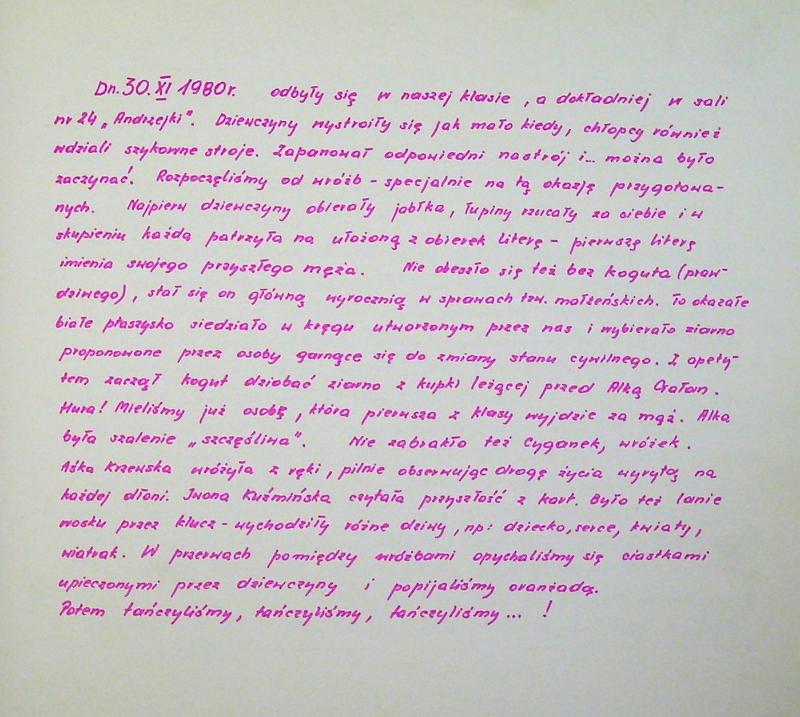 Dn. 30. XI 1980r. odbyły się w naszej klasie, a dokładniej w sali
nr 24 „Andrzejki". Dziewczyny wystroiły się jak mało kiedy, chłopcy również
wdziali szykowne stroje. Zapanował odpowiedni nastrój i... można było
zaczynać. Rozpoczęliśmy od wróżb - specjalnie na tą okazję przygotowa-
nych. Najpierw dziewczyny obierały jabłka, łupiny rzucały za siebie i w
skupieniu każda patrzyła na ułożoną z obierek literę - pierwszą literę
imienia swojego przyszłego męża. Nie obeszło się też bez koguta (praw-
dziwego), stał się on główną wyrocznią w sprawach tzw. małżeńskich. To okazałe
białe ptaszysko siedziało w kręgu utworzonym przez nas i wybierało ziarno
proponowane przez osoby garnące się do zmiany stanu cywilnego. Z apety-
tem zaczął kogut dziobać ziarno z kupki leżącej przed Alką
Hura! Mieliśmy już osobę, która pierwsza z klasy wyjdzie za mąż. Alka
była szalenie „szczęśliwa". Nie zabrakło też Cyganek, wróżek.
Aśka Krzewska wróżyła z ręki, pilnie obserwując drogę życia wyrytą na
każdej dłoni. Iwona Kuźmińska czytała przyszłość z kart. Było też lanie
wosku przez klucz - wychodziły różne dziwy, np: dziecko, serce, kwiaty,
wiatrak. W przerwach pomiędzy wróżbami opychaliśmy się ciastkami
upieczonymi przez dziewczyny i popijaliśmy oranżadą.
Potem tańczyliśmy, tańczyliśmy, tańczyliśmy... !